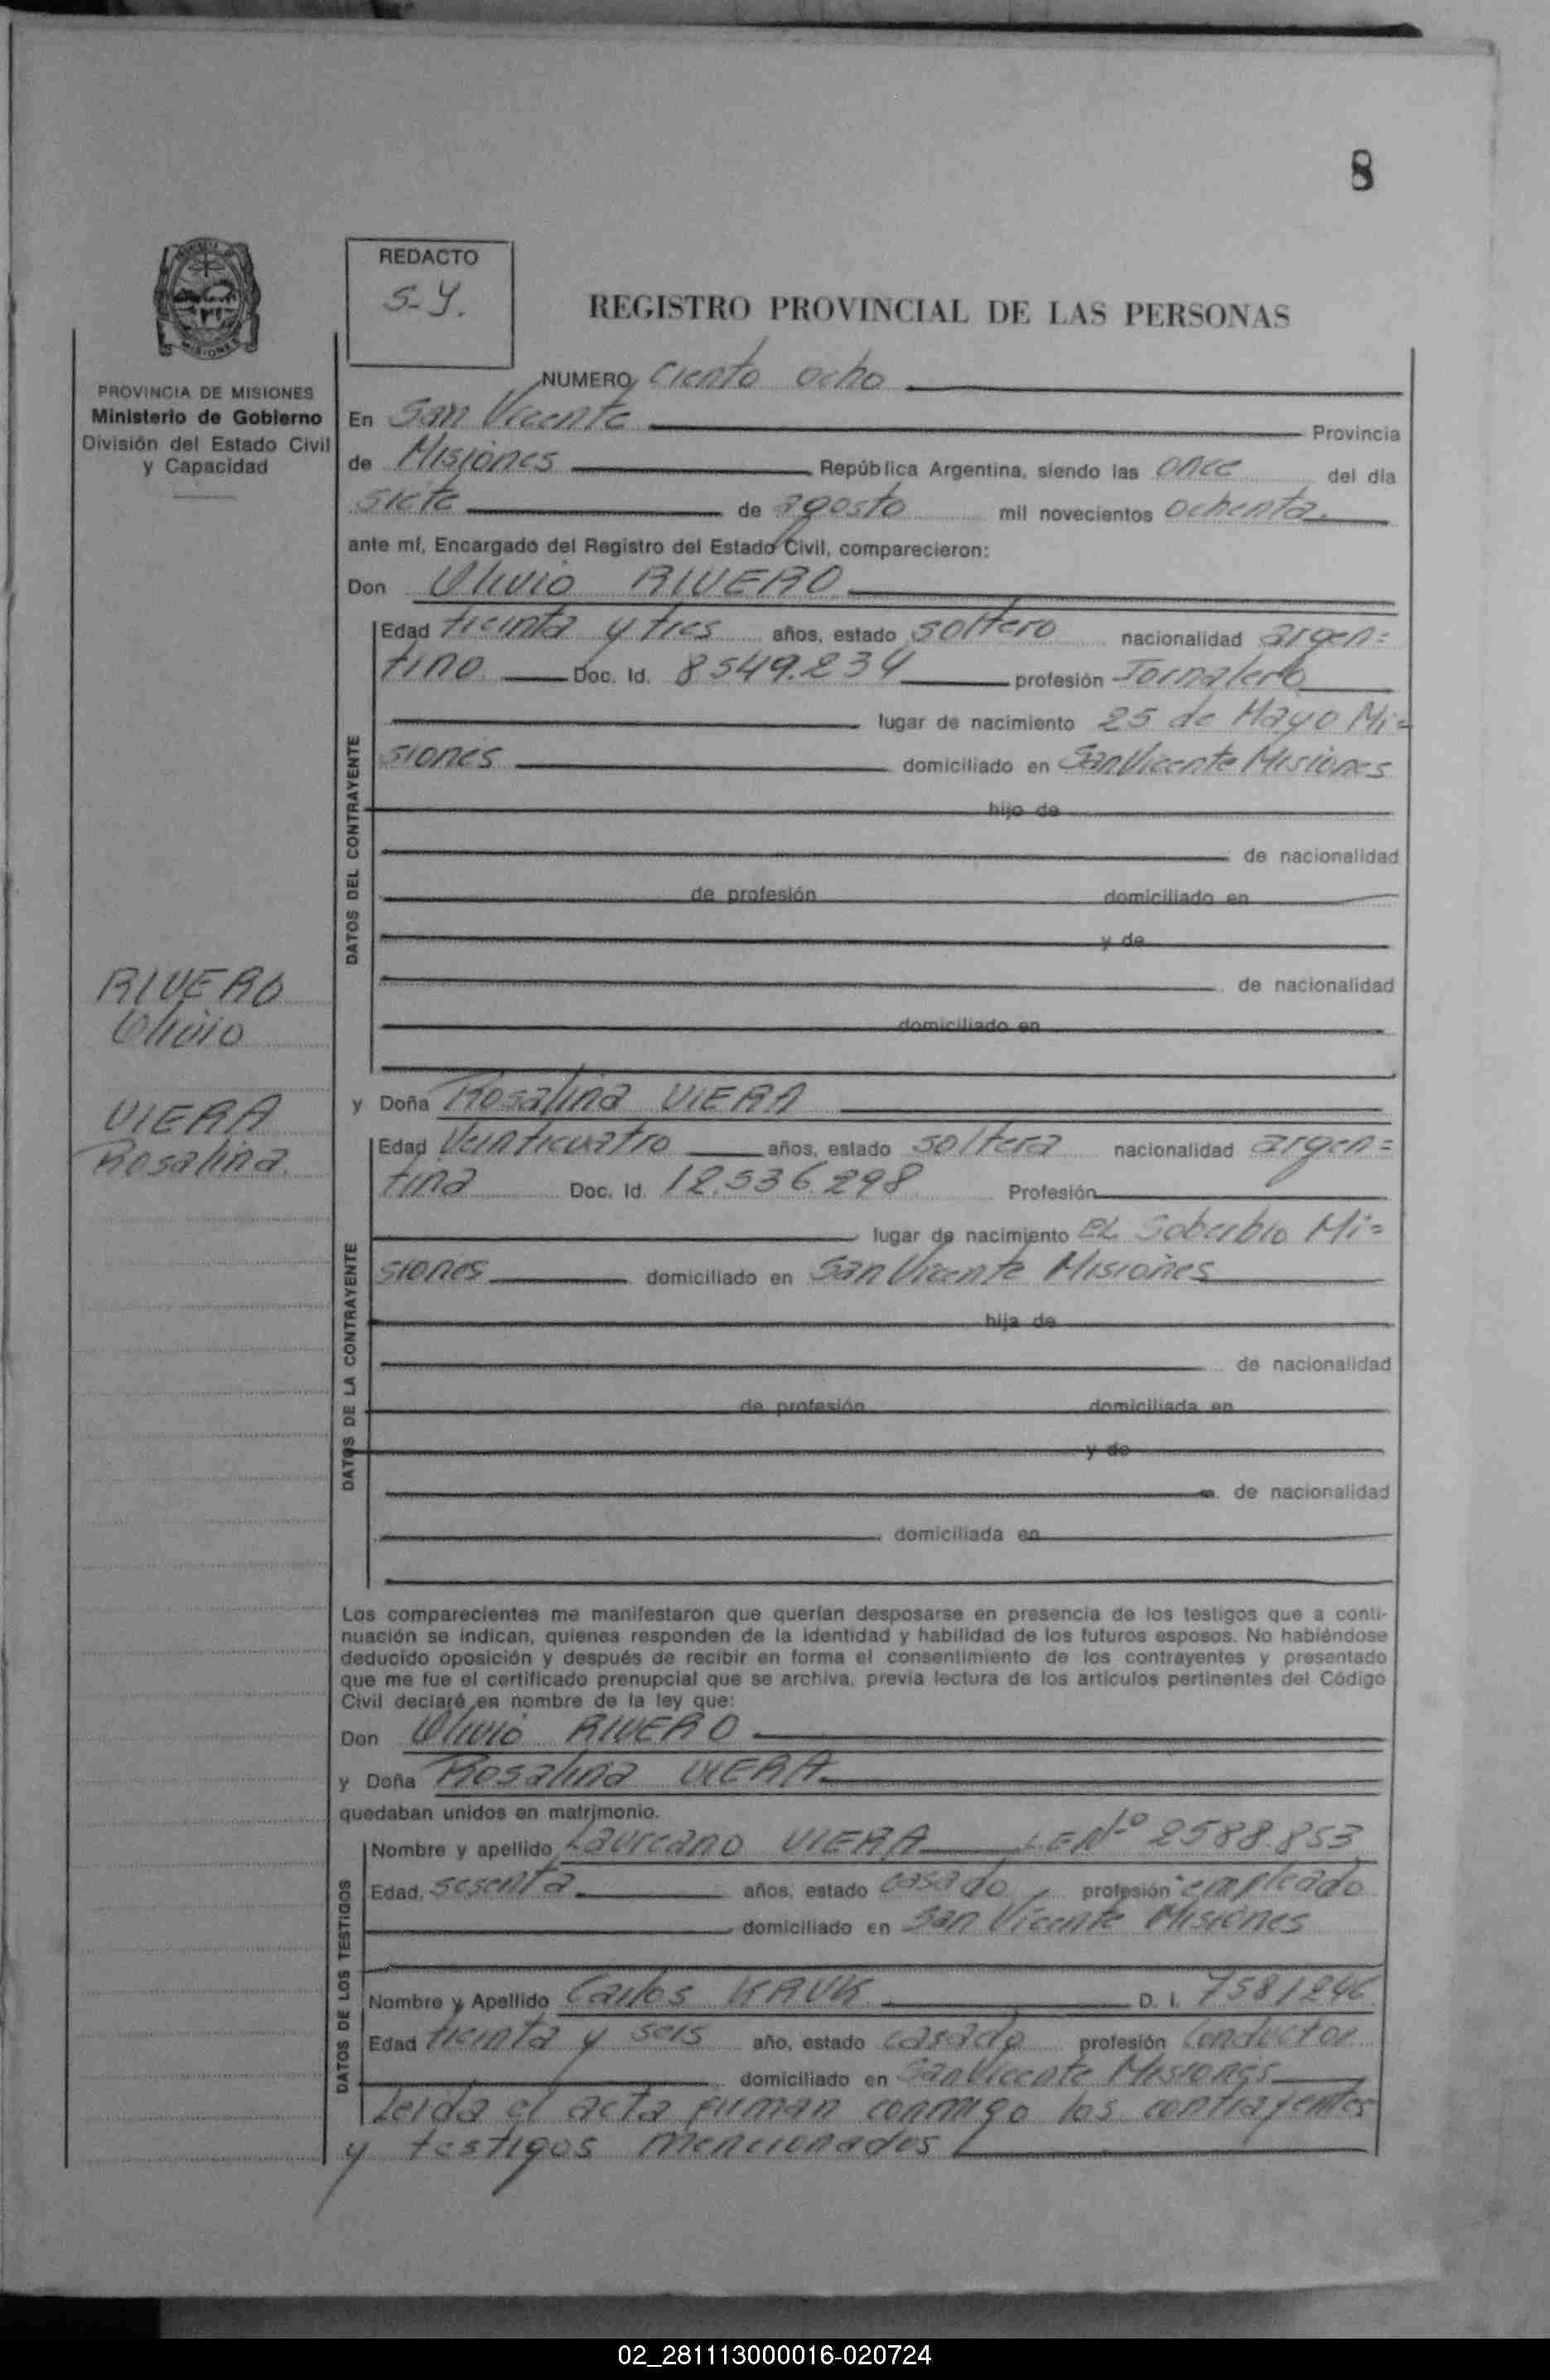 8
REDACTO
S-Y.
REGISTRO PROVINCIAL DE LAS PERSONAS
MISIONES
PROVINCIA DE MISIONES
Ministerio de Gobierno
División del Estado Civil
y Capacidad
NUMERO Ciento ocho
En San Vicente Provincia
de Misiones República Argentina, siendo las once del día
siete de agosto mil novecientos ochenta.
ante mí, Encargado del Registro del Estado Civil, comparecieron:
Don Olivio RIVERO
DATOS DEL CONTRAYENTE
Edad treinta y tres años, estado soltero nacionalidad argen=
tino Doc. Id. 8549.234 profesión Jornalero
lugar de nacimiento 25 de Mayo Mi=
siones domiciliado en San Vicente Misiones
hijo de
de nacionalidad
de profesión domiciliado en
y de
de nacionalidad
domiciliado en
RIVERO
Olivio
VIERA
Rosalina
y Doña Rosalina VIERA
DATOS DE LA CONTRAYENTE
Edad Veinticuatro años, estado soltera nacionalidad argen=
tina Doc. Id. 12.536.298 Profesión
lugar de nacimiento EL Soberbio Mi=
siones domiciliado en San Vicente Misiones
hija de
de nacionalidad
de profesión domiciliada en
y de
de nacionalidad
domiciliada en
Los comparecientes me manifestaron que querían desposarse en presencia de los testigos que a conti-
nuación se indican, quienes responden de la identidad y habilidad de los futuros esposos. No habiéndose
deducido oposición y después de recibir en forma el consentimiento de los contrayentes y presentado
que me fue el certificado prenupcial que se archiva, previa lectura de los artículos pertinentes del Código
Civil declaré en nombre de la ley que:
Don Olivio RIVERO
y Doña Rosalina VIERA
quedaban unidos en matrimonio.
DATOS DE LOS TESTIGOS
Nombre y apellido Laureano VIERA LE Nº 2588.853
Edad, sesenta años, estado casado, profesión empleado
domiciliado en San Vicente Misiones
Nombre y Apellido Carlos KAUK D. I. 7581246
Edad treinta y seis año, estado casado profesión Conductor
domiciliado en San Vicente Misiones
Leida el acta firman conmigo los contrayentes
y testigos mencionados
02_281113000016-020724